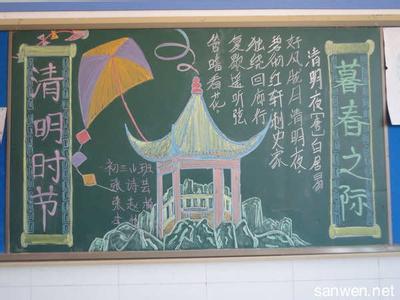 暮春之际
清明夜[唐]白居易
好风胧月清明夜
碧砌红轩刺史家
独绕回廊行
复歇遥听弦
管暗看花
初三班
清明时节
sanwen.net